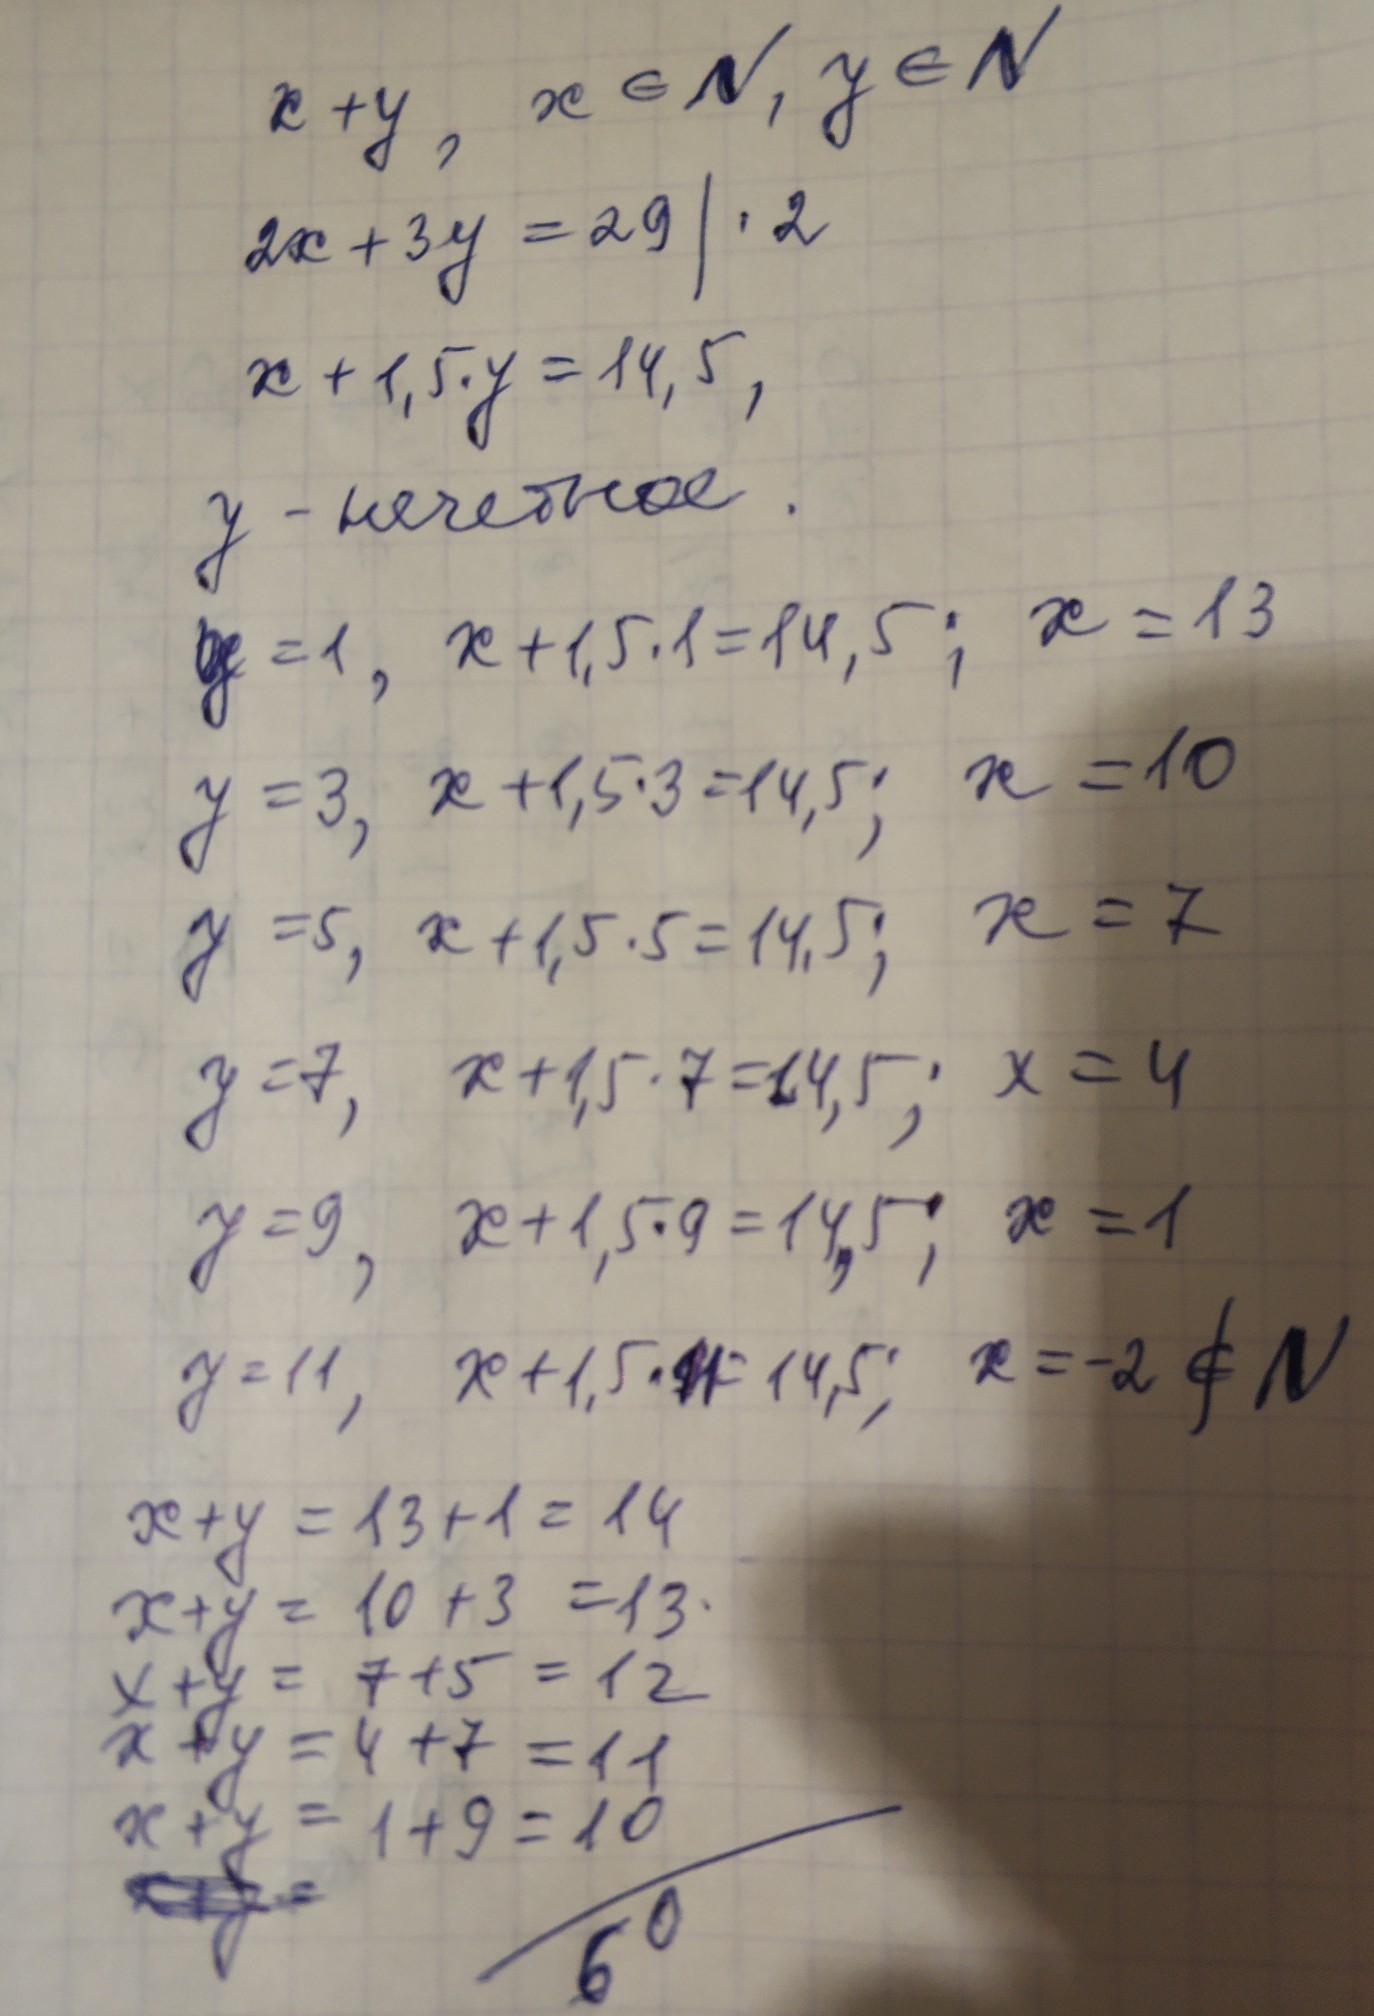 x + y, x ∈ N, y ∈ N
2x + 3y = 29 | · 2
x + 1,5 · y = 14,5,
y - нечетное.
y = 1, x + 1,5 · 1 = 14,5; x = 13
y = 3, x + 1,5 · 3 = 14,5; x = 10
y = 5, x + 1,5 · 5 = 14,5; x = 7
y = 7, x + 1,5 · 7 = 14,5; x = 4
y = 9, x + 1,5 · 9 = 14,5; x = 1
y = 11, x + 1,5 · 11 = 14,5; x = -2 ∉ N
x + y = 13 + 1 = 14
x + y = 10 + 3 = 13.
x + y = 7 + 5 = 12
x + y = 4 + 7 = 11
x + y = 1 + 9 = 10